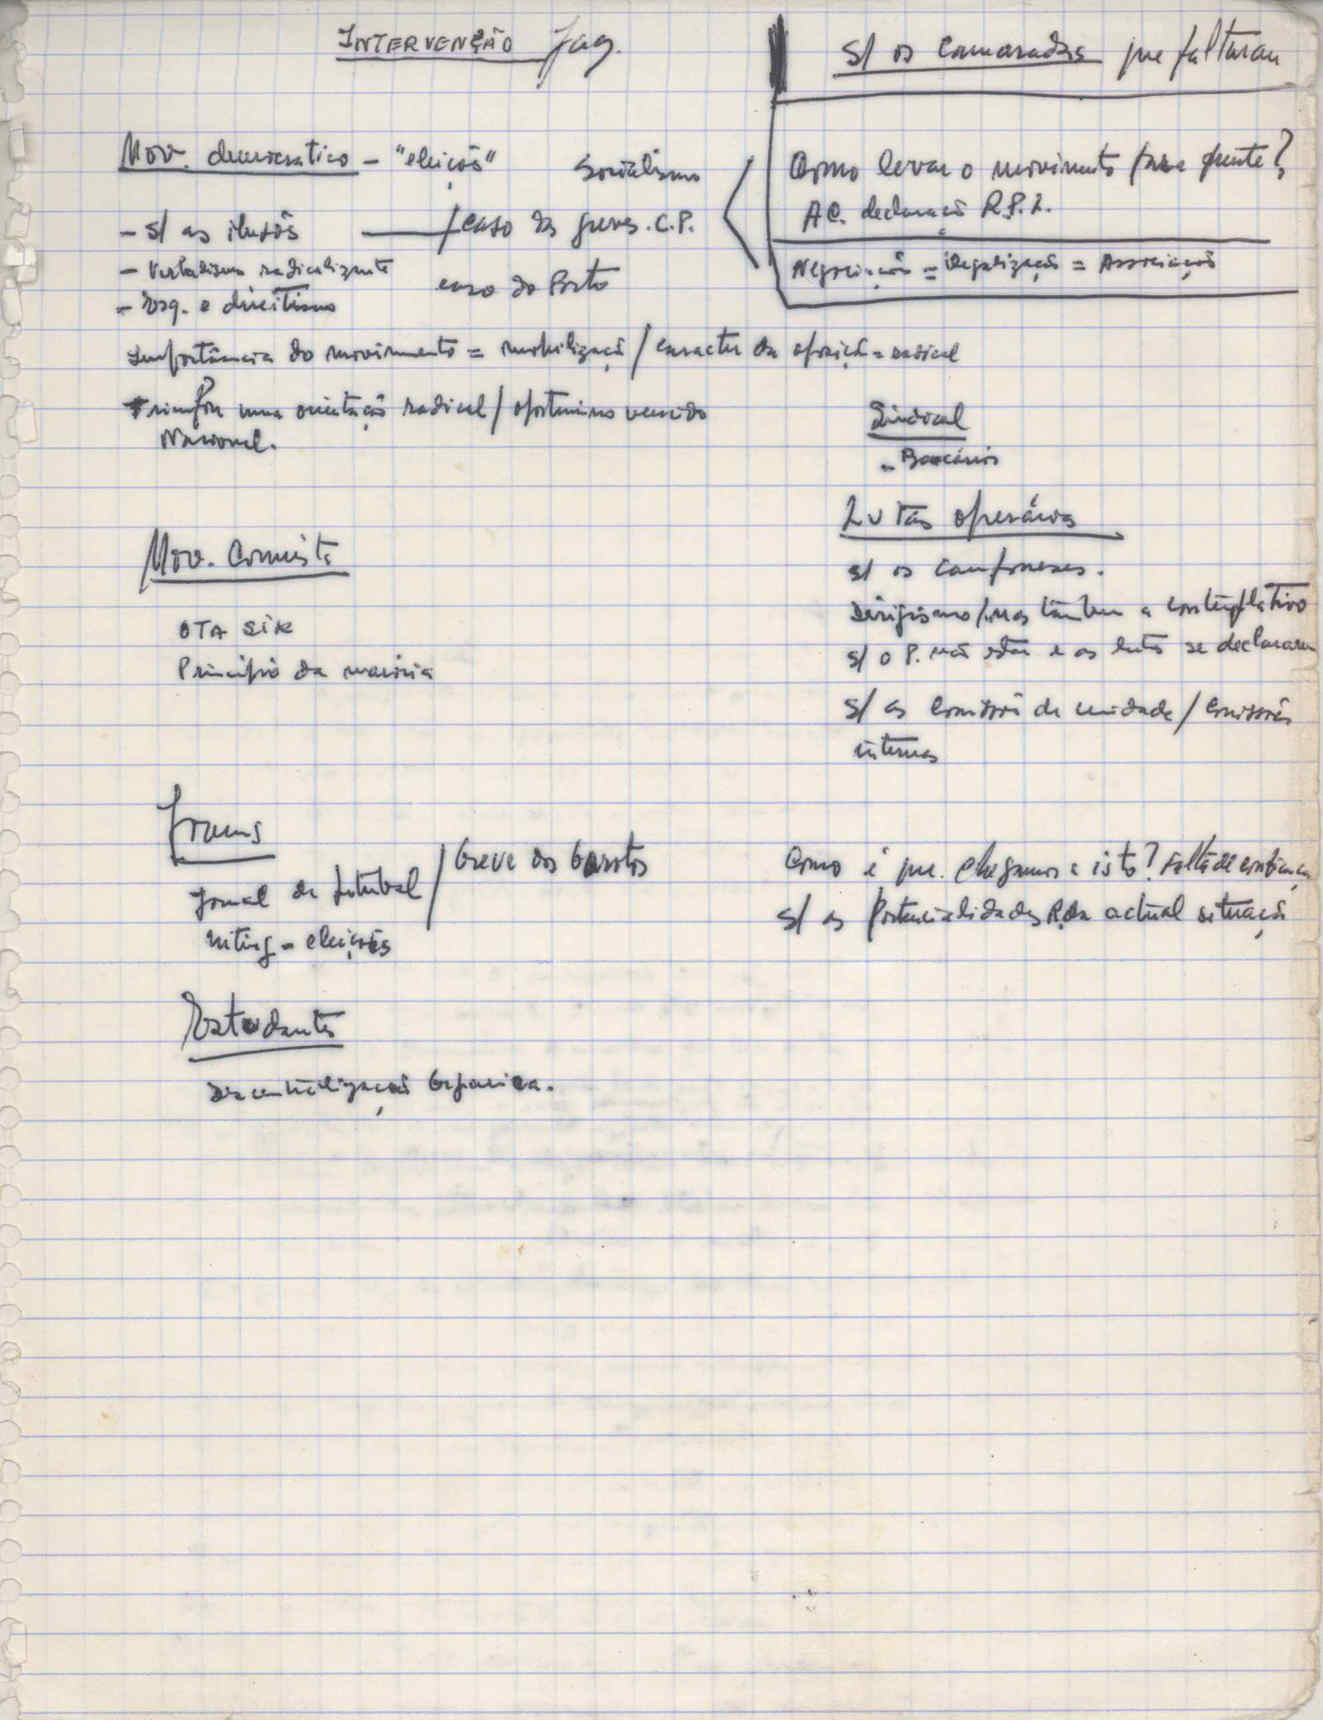 INTERVENÇÃO
s/ os camaradas que faltaram
Mov. democratico - "eleições"
Socialismo
Como levar o movimento para frente?
AC. declaração R.P.L.
- s/ as ilusões
/ caso das greves. C.P.
- Verbalismo radicalizante
caso do Porto
Negociação = Legalização = Associação
- Esq. e direitismo
Importância do movimento = mobilização / caracter da oposição = radical
Triunfou uma orientação radical / oportunismo vencido
Nacional.
Sindical
- Bancários
Lutas operárias
s/ os camponeses.
Dirigismo / mas também a contemplativo
s/ o P. não estar e as lutas se declararem
s/ as Comissões de unidade / Comissões
internas
Mov. Comunista
OTA SIK
Princípio da maioria
Jornal de futebol / Greve dos Garotos
miting - eleições
Como é que chegamos a isto? Falta de confiança
s/ as Potencialidades R. da actual situação
Estudantes
Descentralização Orgânica.